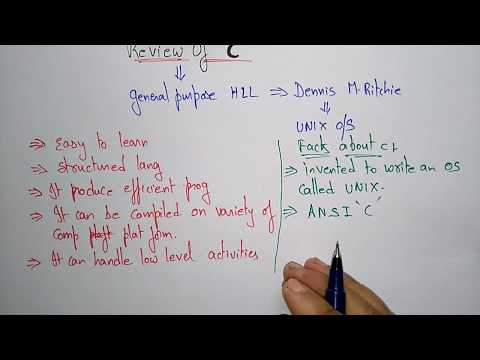 Review Of C
⇓
general purpose HLL ⇒ Dennis M. Ritchie
⇓
UNIX O/S
⇒ Easy to learn
⇒ structured lang
⇒ It produce efficient prog
⇒ It can be compiled on variety of
comp plat form.
⇒ It can handle low level activities
Facts about C:
⇒ invented to write an OS
called UNIX.
⇒ ANSI 'C'